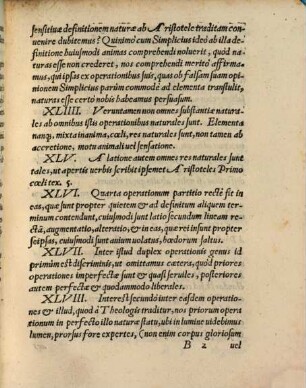 sensitiuæ definitionem naturæ ab Aristotele traditam con-
uenire dubitemus? Quinimò cum Simplicius ideò ab illa de-
finitione huiusmodi animas comprehendi noluerit, quòd na-
turas esse non crederet, nos comprehendi meritò affirma-
mus, qui ipsas ex operationibus suis, quas ob falsam suam opin-
ionem Simplicius parùm commodè ad elementa transtulit,
naturas esse certò nobis habeamus persuasum.
XLIIII. Veruntamen non omnes substantiæ natura-
les ab omnibus istis operationibus naturales sunt. Elementa
nanq; mixta inanima, cœli, res naturales sunt, non tamen ab
accretione, motu animali uel sensatione.
XLV. A latione autem omnes res naturales sunt
tales, ut apertis uerbis scribit ipsemet Aristoteles: Primo
cœli tex. 5.
XLVI. Quarta operationum partitio rectè sit in
eas, quæ sunt propter quietem & ad definitum aliquem ter-
minum contendunt, cuiusmodi sunt latio secundum lineam re-
ctã, augmentatio, alteratio, & in eas, quæ fiunt propter
seipsas, cuiusmodi sunt auium uolatus, hœdorum saltus.
XLVII. Inter istud duplex operationis genus id
primùm est discriminis, ut omittamus cætera, quòd priores
operationes imperfectæ sunt & quasi seruiles, posteriores
autem perfectæ & quodammodo liberales.
XLVIII. Interest secundò inter easdem operatio-
nes & illud, quod à Theologis traditur, nos priorum opera
tionum in perfecto illo naturæ statu, ubi in lumine uidebimus
lumen, prorsus fore expertes, (non enim corpus gloriosum
B 2 uel